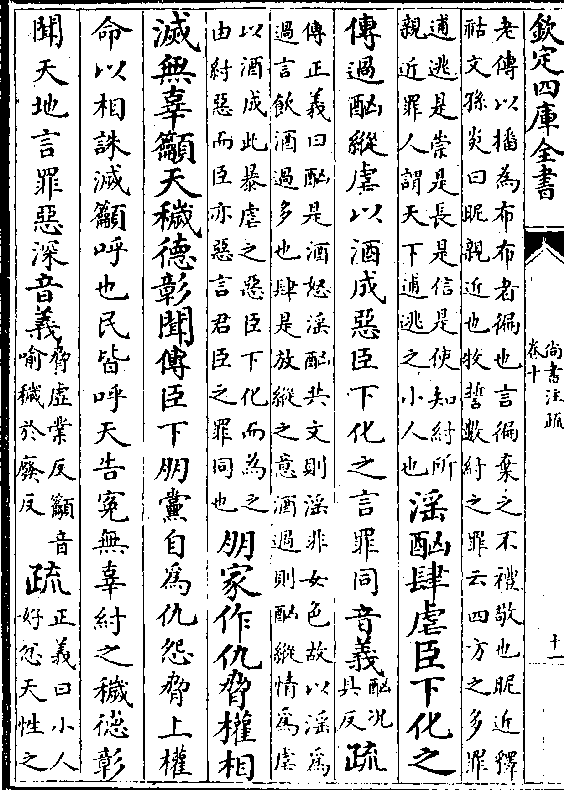 欽定四庫全書
尚書注疏
卷十
十一
老傳以播為布布者徧也言徧棄之不禮敬也昵近釋
詁文孫炎曰昵親近也牧誓數紂之罪云四方之多罪
逋逃是崇是長是信是使知紂所
親近罪人謂天下逋逃之小人也
淫酗肆虐臣下化之
傳過酗縱虐以酒成惡臣下化之言罪同音義
酗况
具反
疏
傳正義曰酗是酒怒淫酗共文則淫非女色故以淫為
過言飲酒過多也肆是放縱之意酒過則酗縱情為虐
以酒成此暴虐之惡臣下化而為之
由紂惡而臣亦惡言君臣之罪同也
朋家作仇脅權相
滅無辜籲天穢德彰聞傳臣下朋黨自為仇怨脅上權
命以相誅滅籲呼也民皆呼天告冤無辜紂之穢德彰
聞天地言罪惡深音義
脅虚業反籲音
喻穢於廢反
疏
正義曰小人
好忿天性之